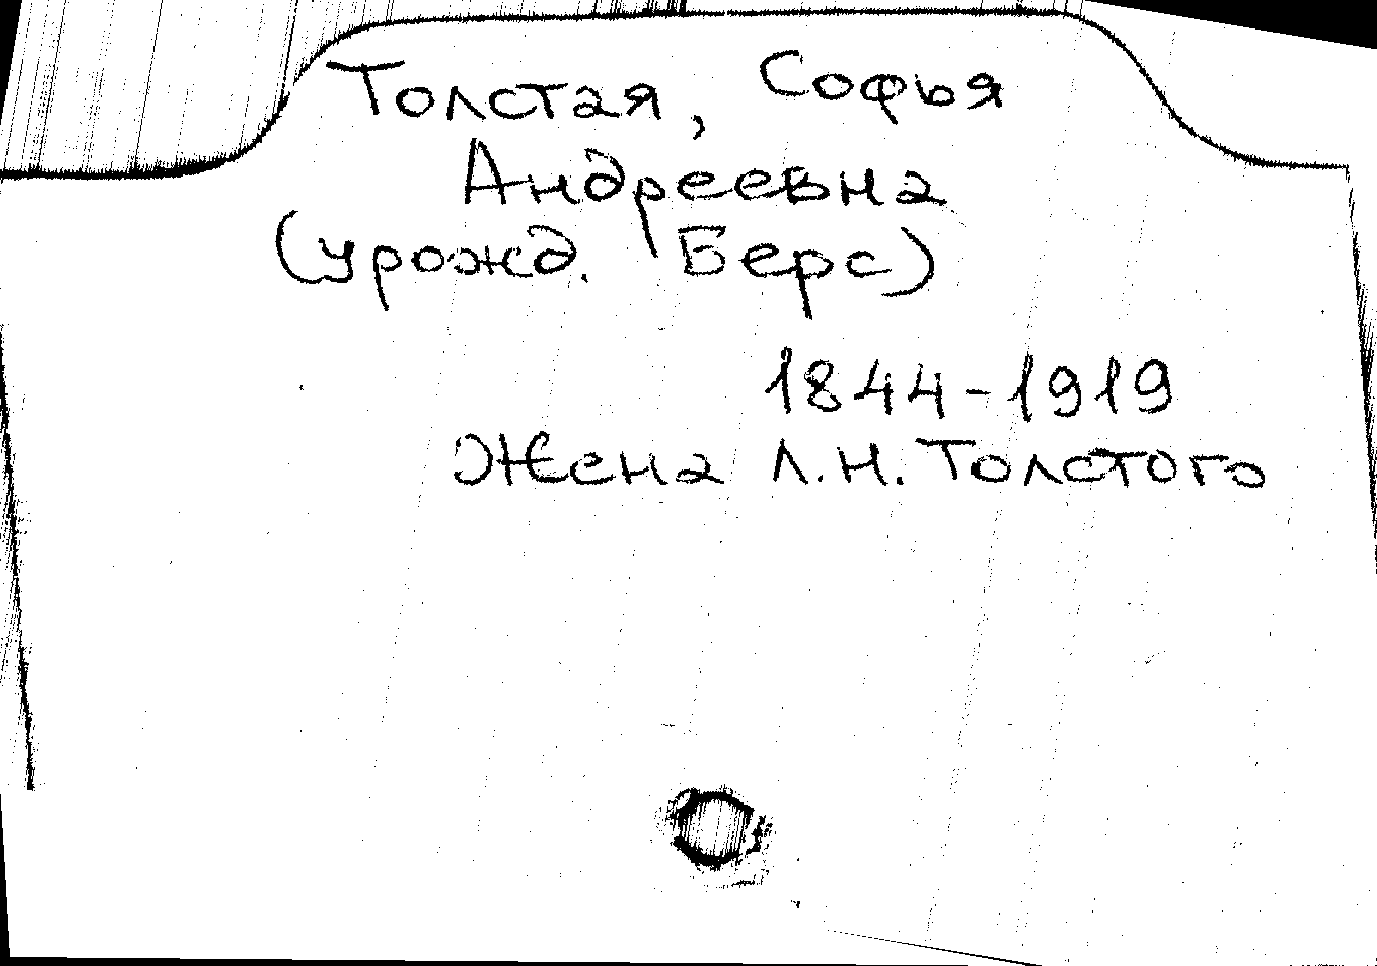 Толстая, Софья
Андреевна
(урожд. Берс)
1844-1919
Жена Л.Н. Толстого